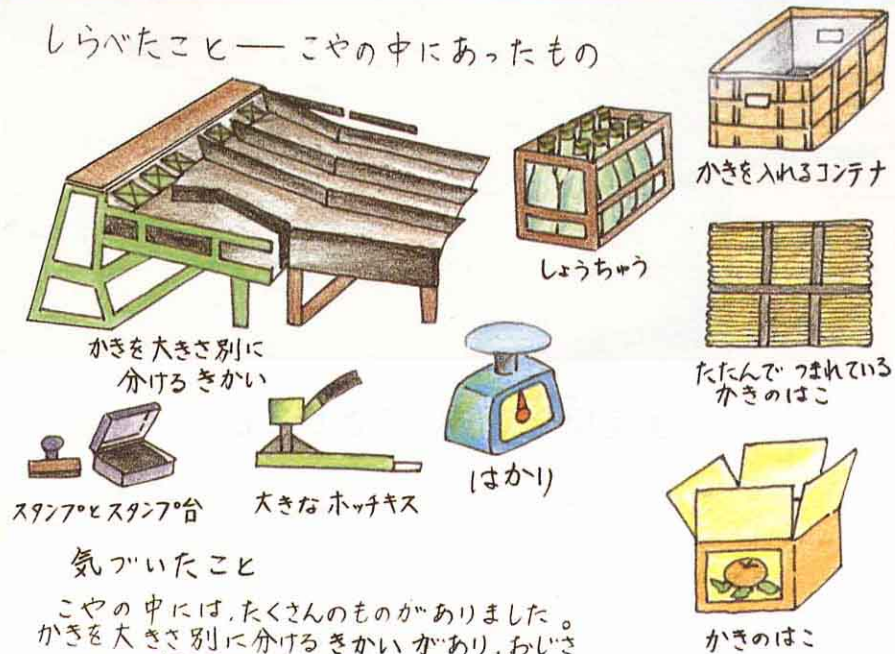 しらべたこと── こやの中にあったもの
かきを入れるコンテナ
しょうちゅう
かきを大きさ別に
分けるきかい
たたんでつまれている
かきのはこ
スタンプとスタンプ台
大きなホッチキス
はかり
かきのはこ
気づいたこと
こやの中には、たくさんのものがありました。
かきを大きさ別に分けるきかいがあり、おじさ